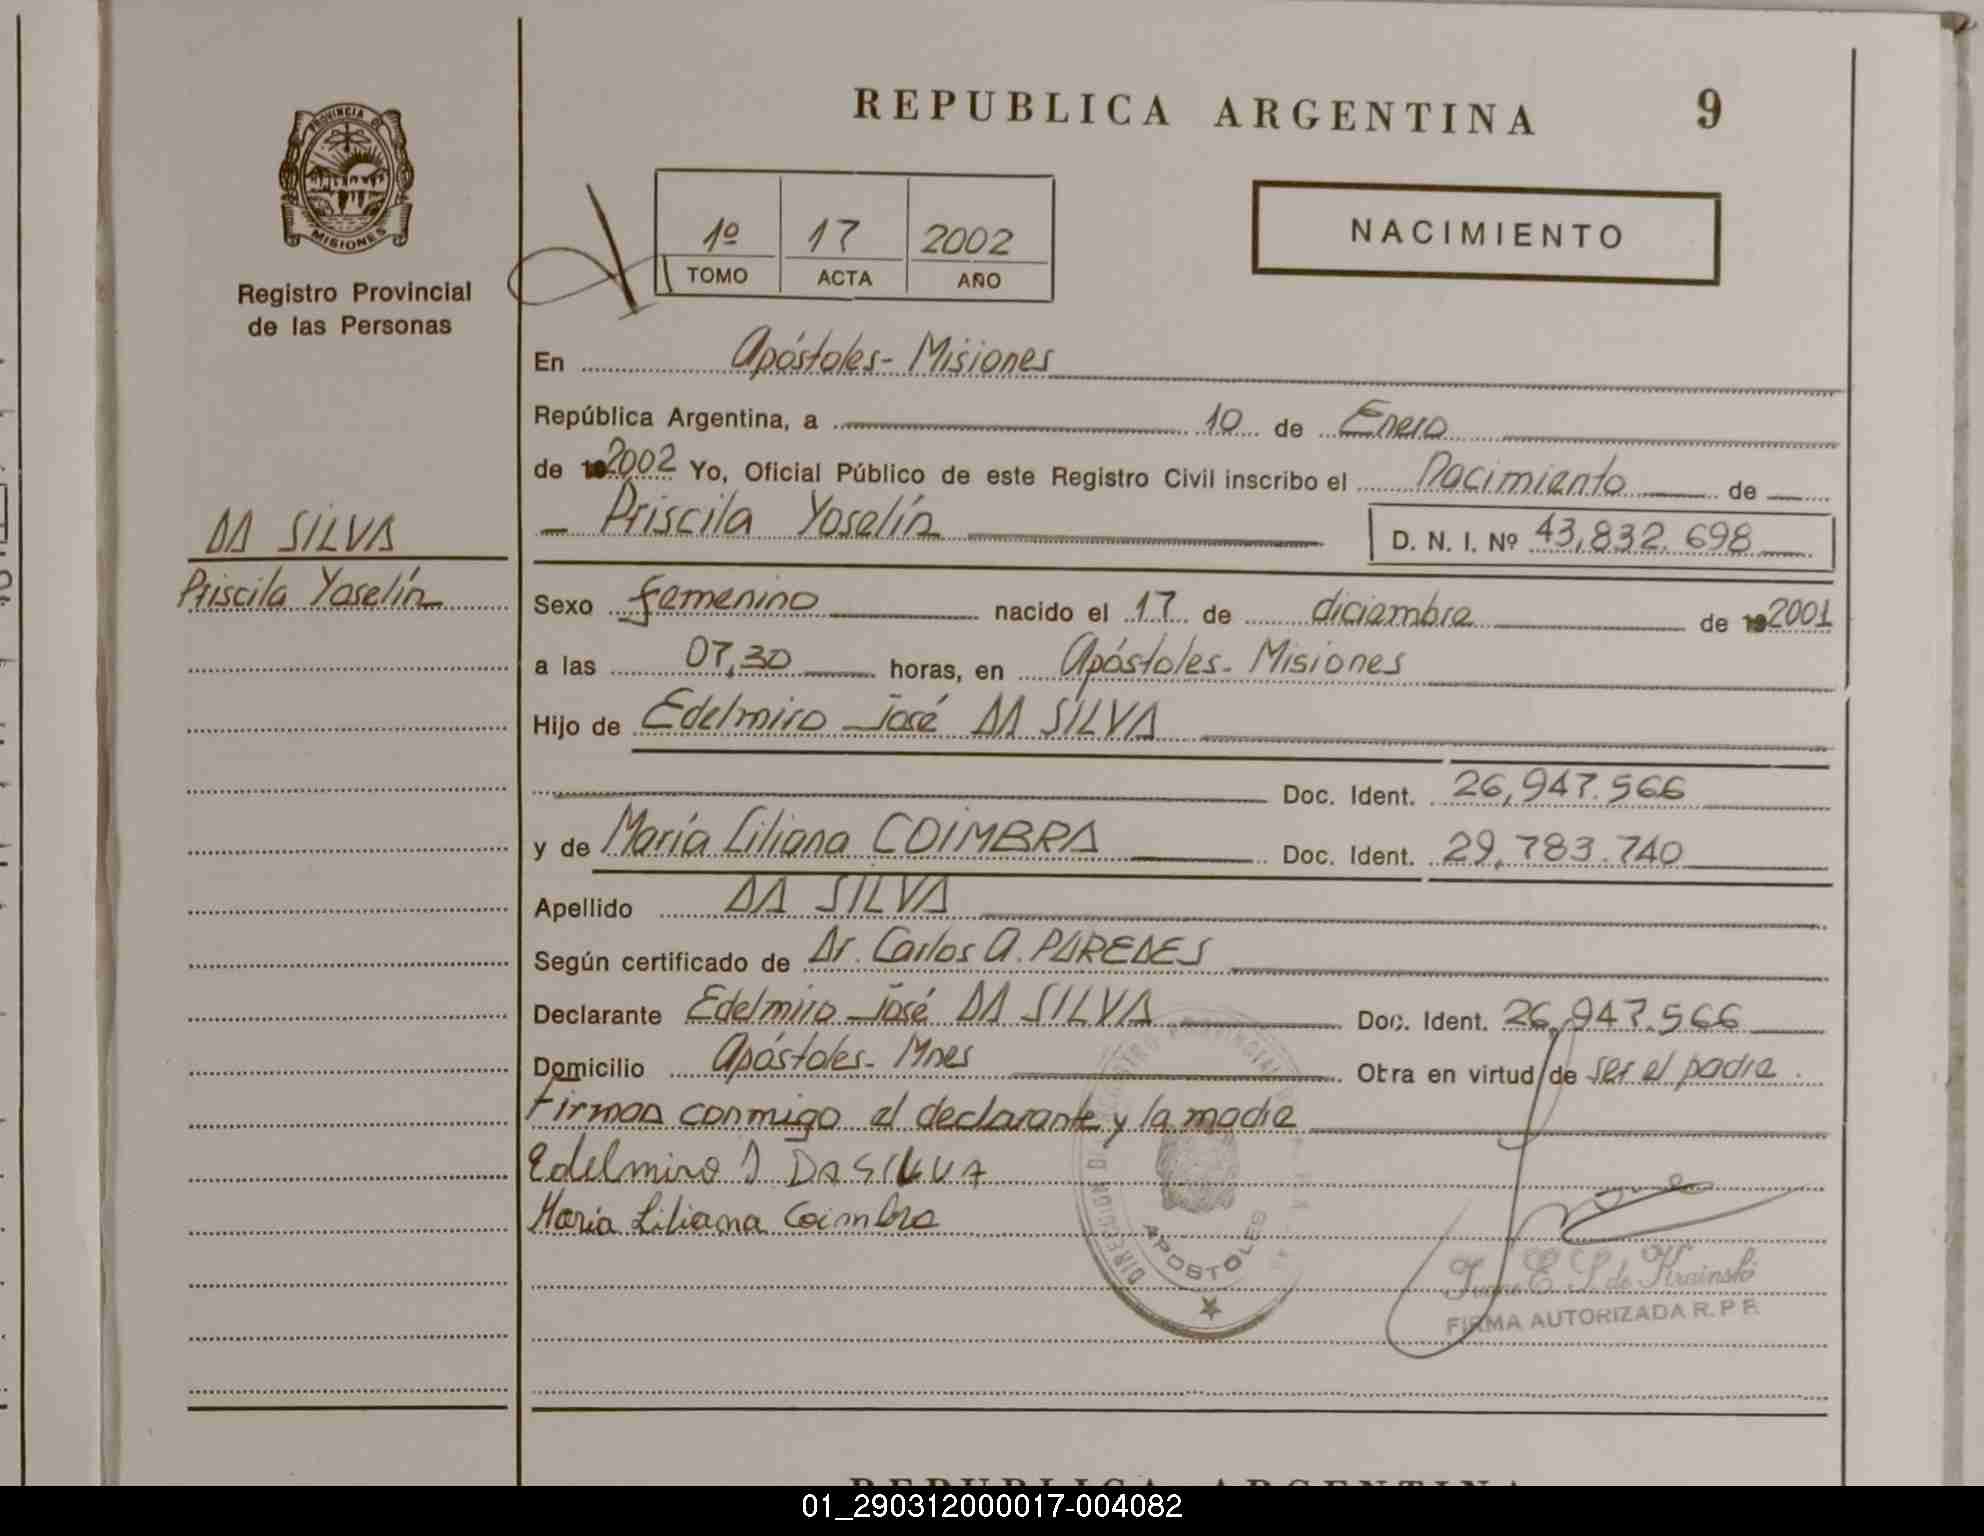 REPUBLICA ARGENTINA 9
PROVINCIA DE
MISIONES
Registro Provincial
de las Personas
1º 17 2002
TOMO ACTA AÑO
NACIMIENTO
En Apóstoles- Misiones
República Argentina, a 10 de Enero
de 19 2002 Yo, Oficial Público de este Registro Civil inscribo el Nacimiento de
Priscila Yoselín D. N. I. Nº 43,832.698
DA SILVA
Priscila Yoselín
Sexo femenino nacido el 17 de diciembre de 19 2001
a las 07,30 horas, en Apóstoles- Misiones
Hijo de Edelmiro José DA SILVA
Doc. Ident. 26,947.566
y de María Liliana COIMBRA Doc. Ident. 29.783.740
Apellido DA SILVA
Según certificado de Dr. Carlos A. PAREDES
Declarante Edelmiro José DA SILVA Doc. Ident. 26,947.566
Domicilio Apóstoles- Mnes Obra en virtud de ser el padre.
Firman conmigo el declarante y la madre
Edelmiro J DASILVA
María Liliana Coimbra
APOSTOLES
FIRMA AUTORIZADA R.P.P.
REPUBLICA ARGENTINA
01_290312000017-004082